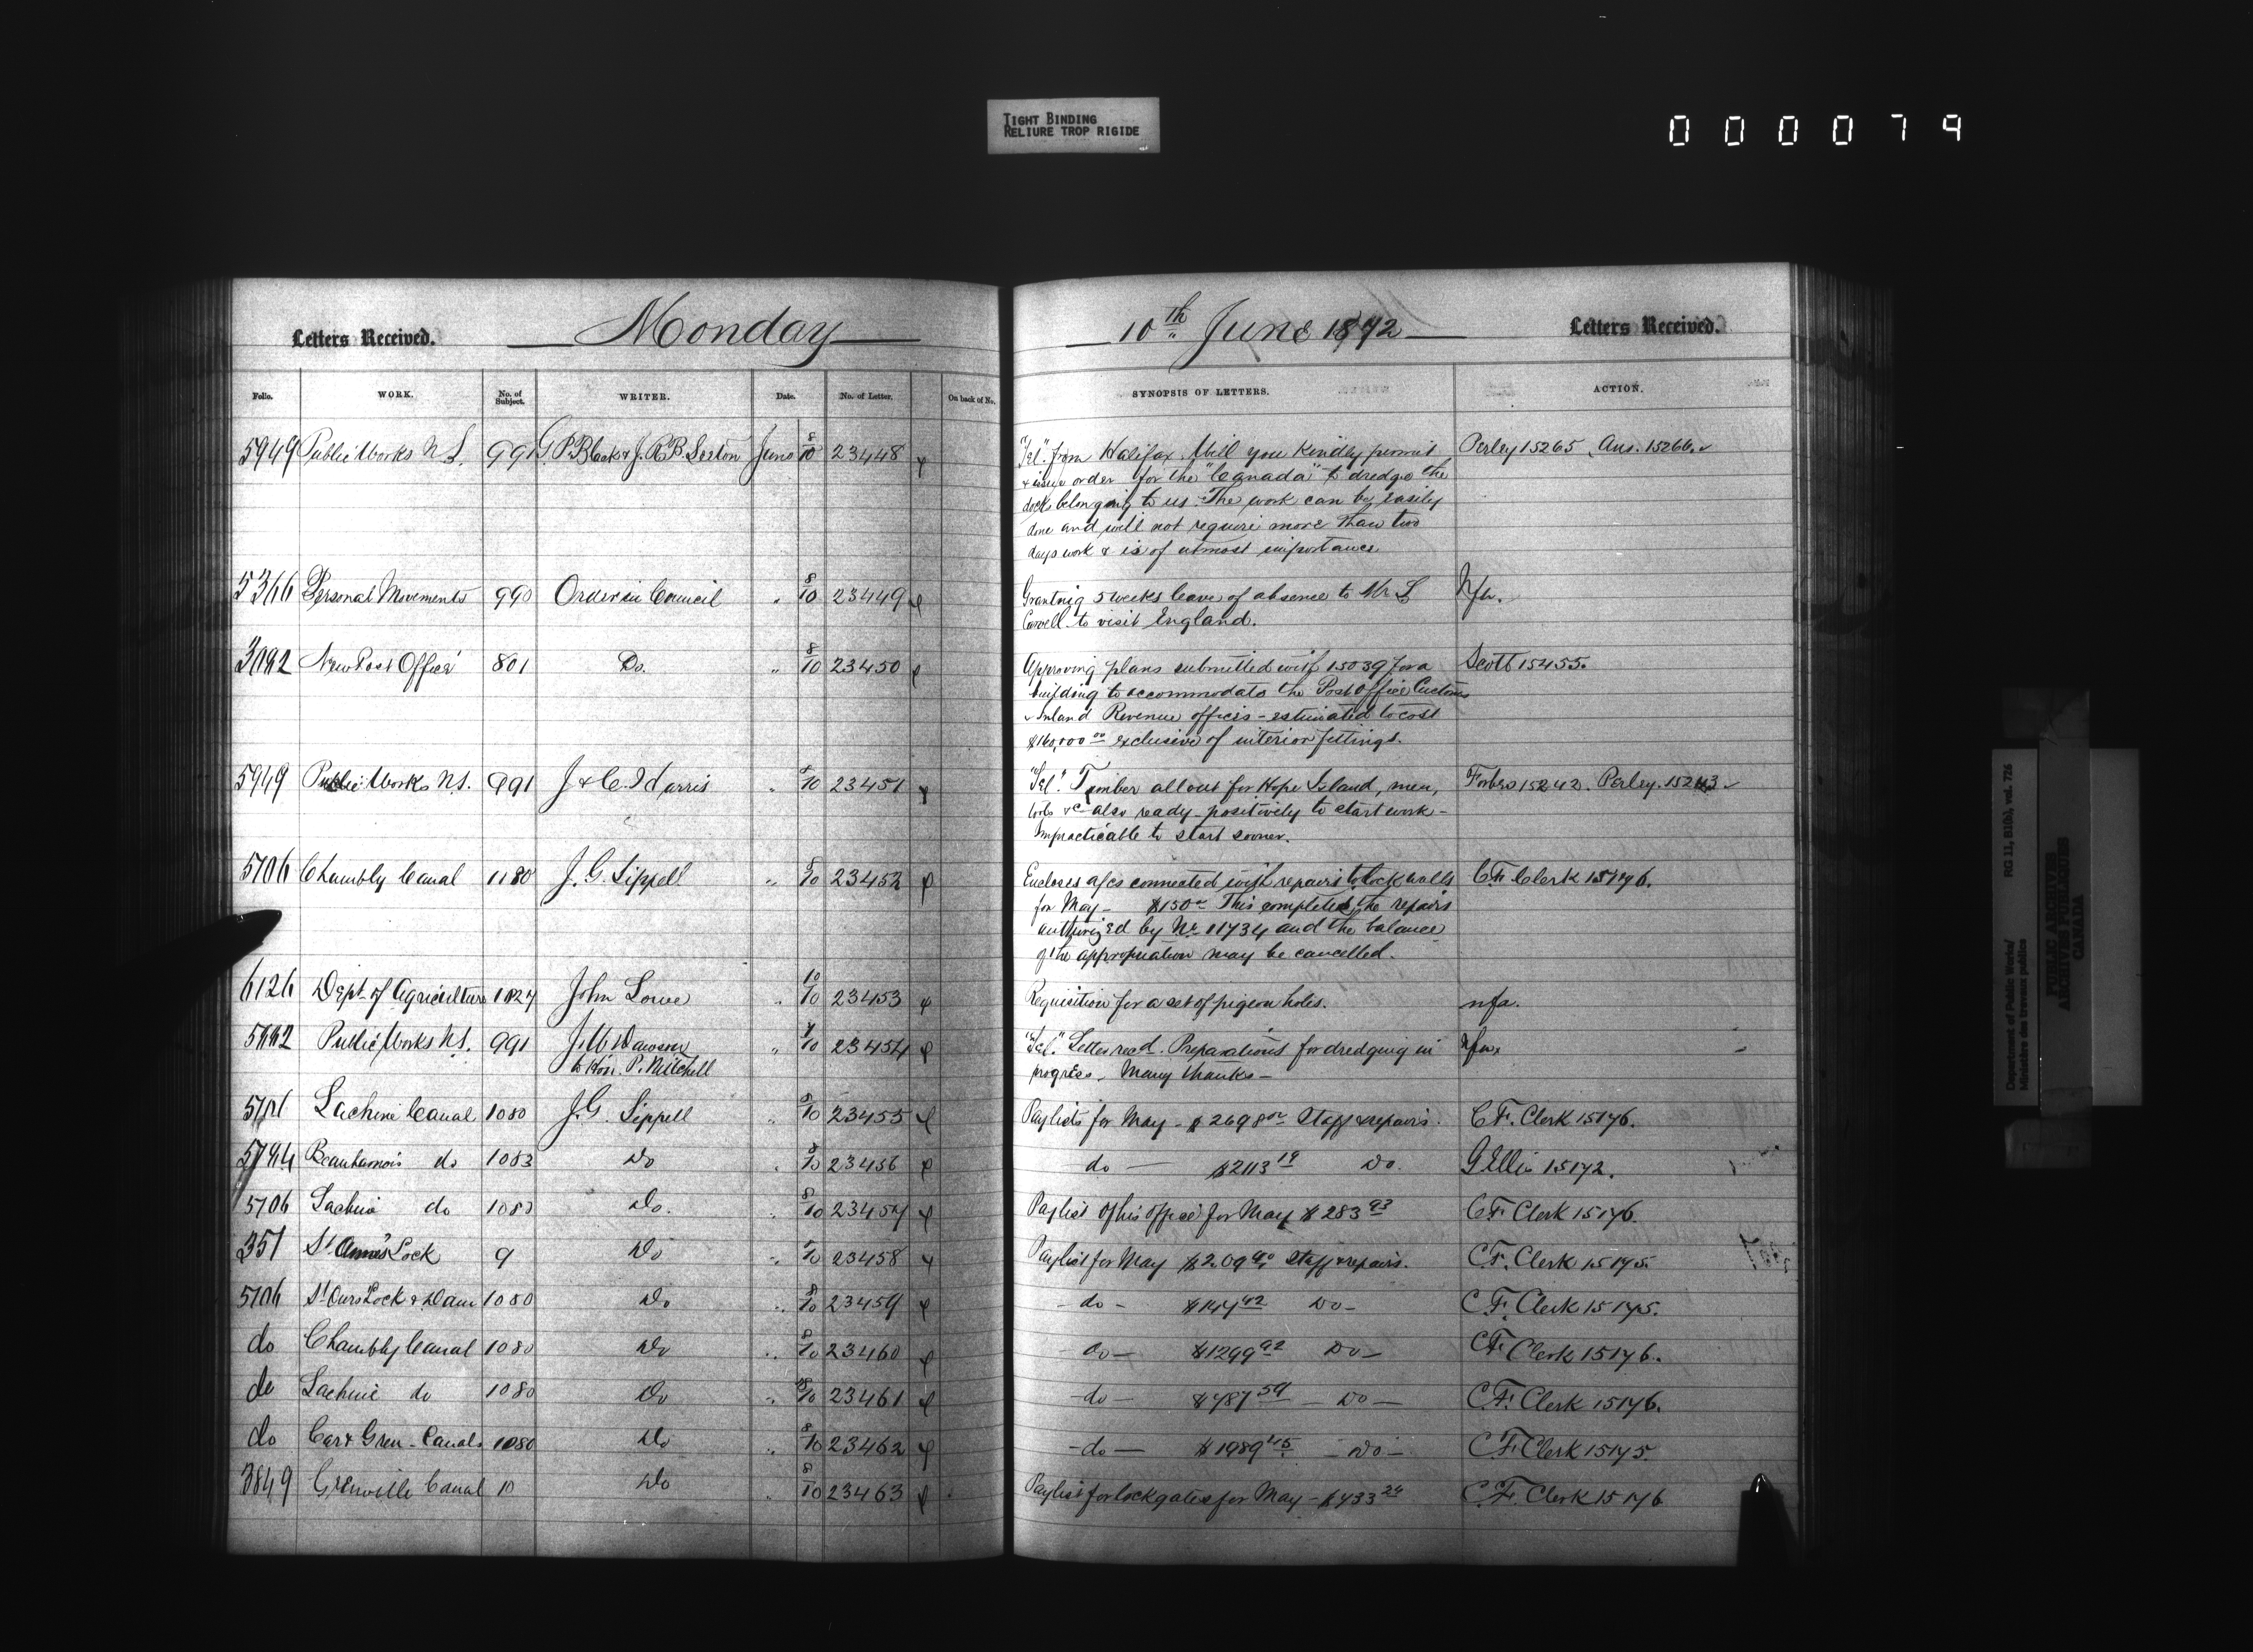 TIGHT BINDING
RELIURE TROP RIGIDE
0 0 0 0 7 9
Letters Received. Monday 10th June 1872 Letters Received.
Folio. WORK. No. of Subject. WRITER. Date. No. of Letter. On back of No. SYNOPSIS OF LETTERS. ACTION.
5949 Public Works N.S. 991 G.P. Black & J.R.B. June 8/10 23448 "Tel." from Halifax. Will you kindly permit Perley 15265, Ans. 15266.
& issue order for the "Canada" to dredge the
dock belonging to us. The work can be easily
done and will not require more than two
days work & is of utmost importance
5366 Personal Movements 990 Order in Council " 8/10 23449 Granting 5 weeks leave of absence to Mr L Nfa.
Carvell to visit England.
3092 New Post Office 801 Do. " 8/10 23450 Approving plans submitted with 15039 for a Scott 15455.
building to accommodate the Post Office Customs
& Inland Revenue offices - estimated to cost
$160,000 00 exclusive of interior fittings.
5949 Public Works N.S. 991 J & C. Harris " 8/10 23451 "Tel." Timber all out for Hope Island, men, Forbes 15242. Perley. 15243
tools &c also ready positively to start work -
Impracticable to start sooner.
5706 Chambly Canal 1180 J.G. Sippell " 8/10 23452 Encloses a/cs connected with repairs to lock walls C.F. Clerk 15176.
for May - $150 00 This completed the repairs
authorized by No 11734 and the balance
of the appropriation may be cancelled.
6126 Dept of Agriculture 1027 John Lowe " 10/10 23453 Requisition for a set of pigeon holes. nfa.
Public Works N.S. 991 J.W. Dawson " 23454 "Tel." Letter recd. Preparations for dredging in nfa
to Hon. P. Mitchell progress. Many thanks -
Lachine Canal 1080 J.G. Sippell " 8/10 23455 Paylists for May - $2698 Staff & repairs. C.F. Clerk 15176.
5794 Beauharnois do 1083 Do " 8/10 23456 do - $2113 19 Do. G Ellis 15172.
5706 Lachine do 1080 Do. " 8/10 23457 Paylist of his office for May $283 93 C.F. Clerk 15176.
351 St Anne's Lock 9 Do " 8/10 23458 Paylist for May $209 90 Staff & repairs. C.F. Clerk 15175.
5706 St Ours Lock & Dam 1080 Do " 8/10 23459 - do - $147 42 Do - C.F. Clerk 15175.
do Chambly Canal 1080 Do " 8/10 23460 - do - $1299 92 Do - C.F. Clerk 15176.
do Lachine do 1080 Do " 8/10 23461 - do - $787 59 - Do - C.F. Clerk 15176.
do Car & Gren - Canals 1080 Do " 8/10 23462 - do - $1989 75 - Do - C.F. Clerk 15175.
3849 Grenville Canal 10 Do " 8/10 23463 Paylist for lockgates for May - $433 24 C.F. Clerk 15176
Department of Public Works/
Ministère des travaux publics
RG 11, B1(b), vol. 726
PUBLIC ARCHIVES
ARCHIVES PUBLIQUES
CANADA